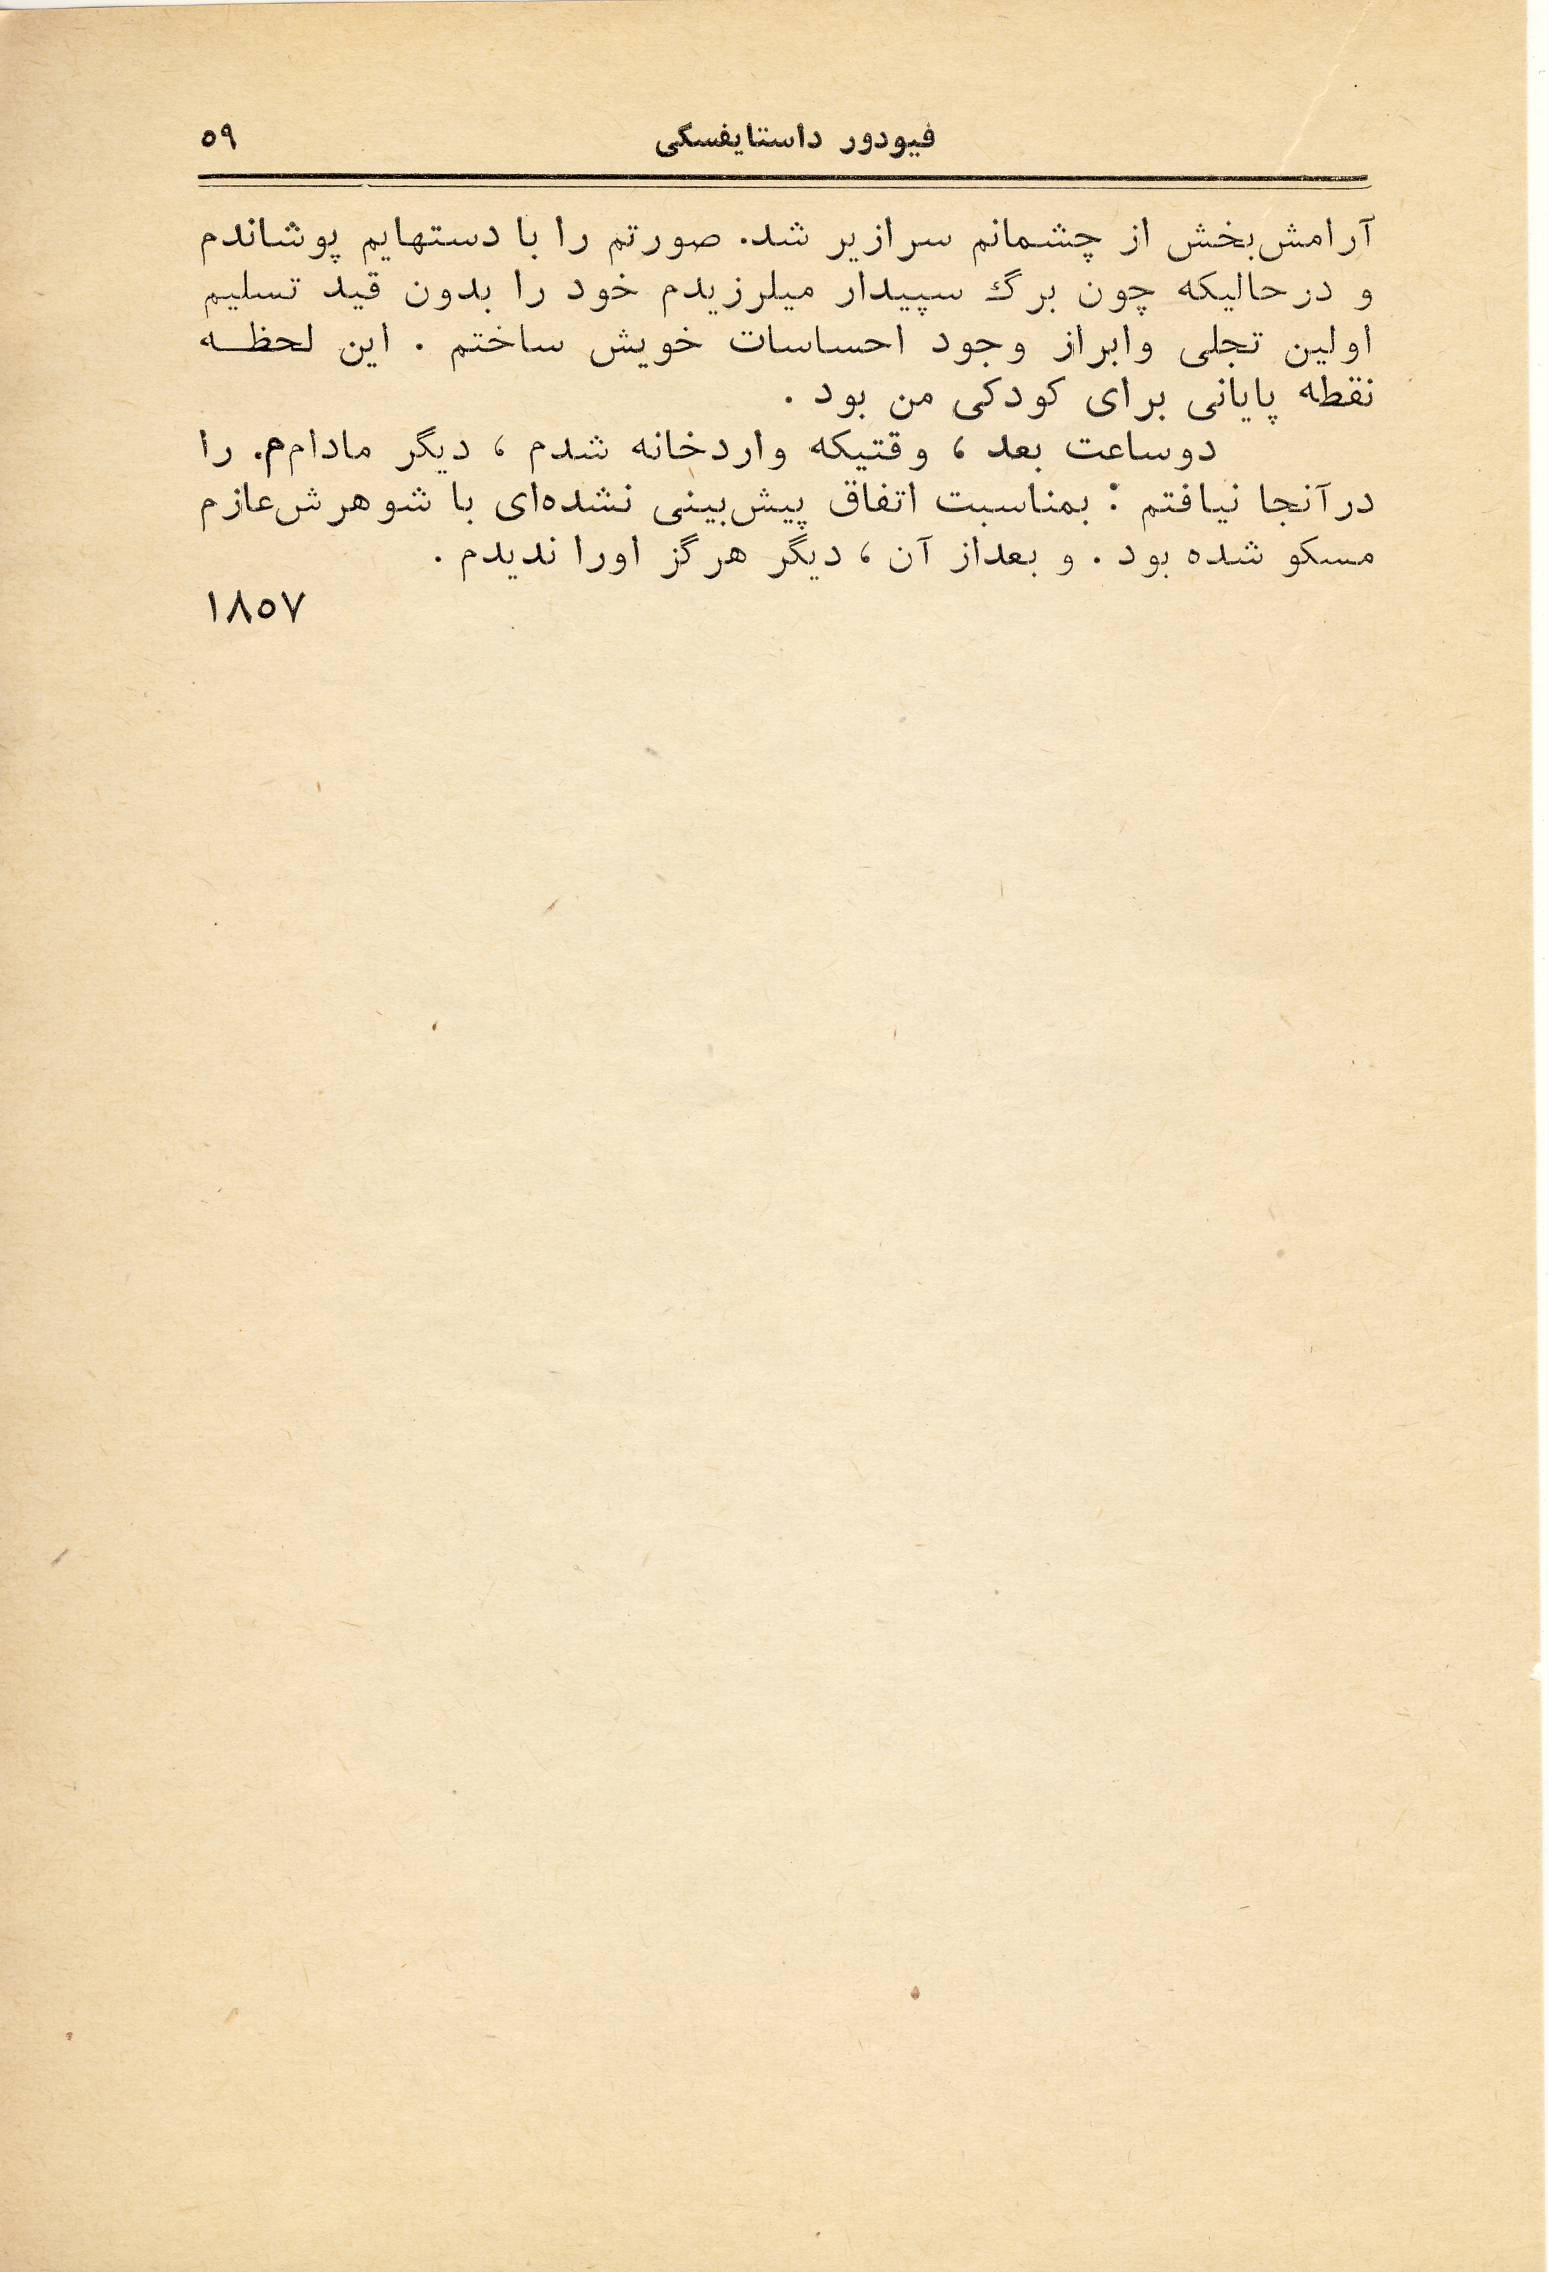 فیودور داستایفسگی ۵۹
آرامش‌بخش از چشمانم سرازیر شد. صورتم را با دستهایم پوشاندم
و درحالیکه چون برگ سپیدار میلرزیدم خود را بدون قید تسلیم
اولین تجلی وابراز وجود احساسات خویش ساختم . این لحظه
نقطه پایانی برای کودکی من بود .
دوساعت بعد ، وقتیکه واردخانه شدم ، دیگر مادام‌م. را
درآنجا نیافتم : بمناسبت اتفاق پیش‌بینی نشده‌ای با شوهرش‌عازم
مسکو شده بود . و بعداز آن ، دیگر هرگز اورا ندیدم .
۱۸۵۷